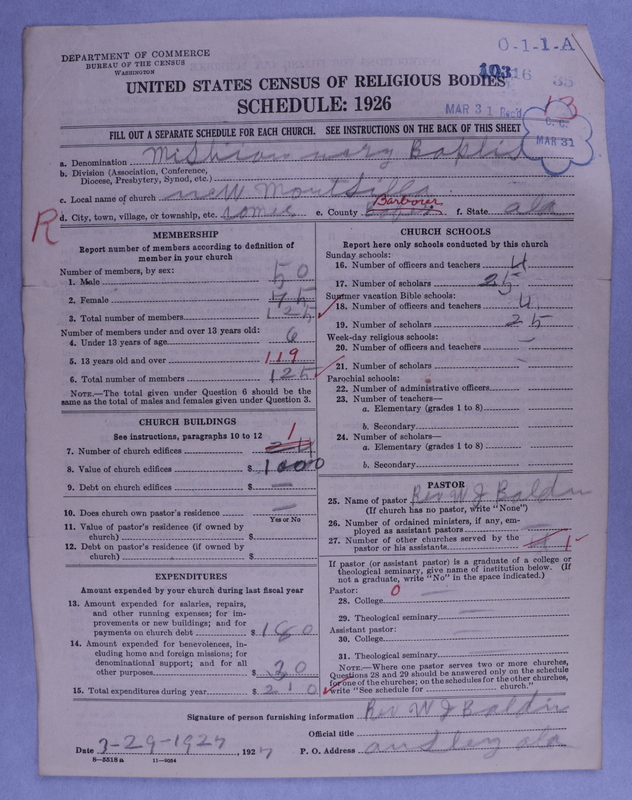 DEPARTMENT OF COMMERCE
BUREAU OF THE CENSUS
WASHINGTON
0-1-1-A
103
16
33
UNITED STATES CENSUS OF RELIGIOUS BODIES
SCHEDULE: 1926
MAR 31 Rec'd
13
C. C.
MAR 31
FILL OUT A SEPARATE SCHEDULE FOR EACH CHURCH. SEE INSTRUCTIONS ON THE BACK OF THIS SHEET
a. Denomination Baptis
b. Division (Association, Conference,
Diocese, Presbytery, Synod, etc.)
c. Local name of church new
d. City, town, village, or township, etc. e. County Barbour f. State ala
R
MEMBERSHIP
Report number of members according to definition of
member in your church
Number of members, by sex:
1. Male 50
2. Female 75
3. Total number of members 125
Number of members under and over 13 years old:
4. Under 13 years of age 6
5. 13 years old and over 119
6. Total number of members 125
NOTE.—The total given under Question 6 should be the
same as the total of males and females given under Question 3.
CHURCH BUILDINGS
See instructions, paragraphs 10 to 12
7. Number of church edifices 1
8. Value of church edifices $ 1000
9. Debt on church edifices $ —
10. Does church own pastor's residence —
Yes or No
11. Value of pastor's residence (if owned by
church) $
12. Debt on pastor's residence (if owned by
church) $
EXPENDITURES
Amount expended by your church during last fiscal year
13. Amount expended for salaries, repairs,
and other running expenses; for im-
provements or new buildings; and for
payments on church debt $ 180
14. Amount expended for benevolences, in-
cluding home and foreign missions; for
denominational support; and for all
other purposes $ 30
15. Total expenditures during year $ 210
CHURCH SCHOOLS
Report here only schools conducted by this church
Sunday schools:
16. Number of officers and teachers 4
17. Number of scholars 25
Summer vacation Bible schools:
18. Number of officers and teachers 4
19. Number of scholars 25
Week-day religious schools:
20. Number of officers and teachers —
21. Number of scholars —
Parochial schools:
22. Number of administrative officers
23. Number of teachers—
a. Elementary (grades 1 to 8)
b. Secondary
24. Number of scholars—
a. Elementary (grades 1 to 8)
b. Secondary
PASTOR
25. Name of pastor Rev W J Baldin
(If church has no pastor, write "None")
26. Number of ordained ministers, if any, em-
ployed as assistant pastors —
27. Number of other churches served by the
pastor or his assistants 1
If pastor (or assistant pastor) is a graduate of a college or
theological seminary, give name of institution below. (If
not a graduate, write "No" in the space indicated.)
Pastor: 0
28. College —
29. Theological seminary —
Assistant pastor:
30. College —
31. Theological seminary —
NOTE.—Where one pastor serves two or more churches,
Questions 28 and 29 should be answered only on the schedule
for one of the churches; on the schedules for the other churches,
write "See schedule for church."
Signature of person furnishing information Rev W J Baldin
Official title
Date 3-29-1927, 1927 P. O. Address ansley ala
8-5518a 11-9054